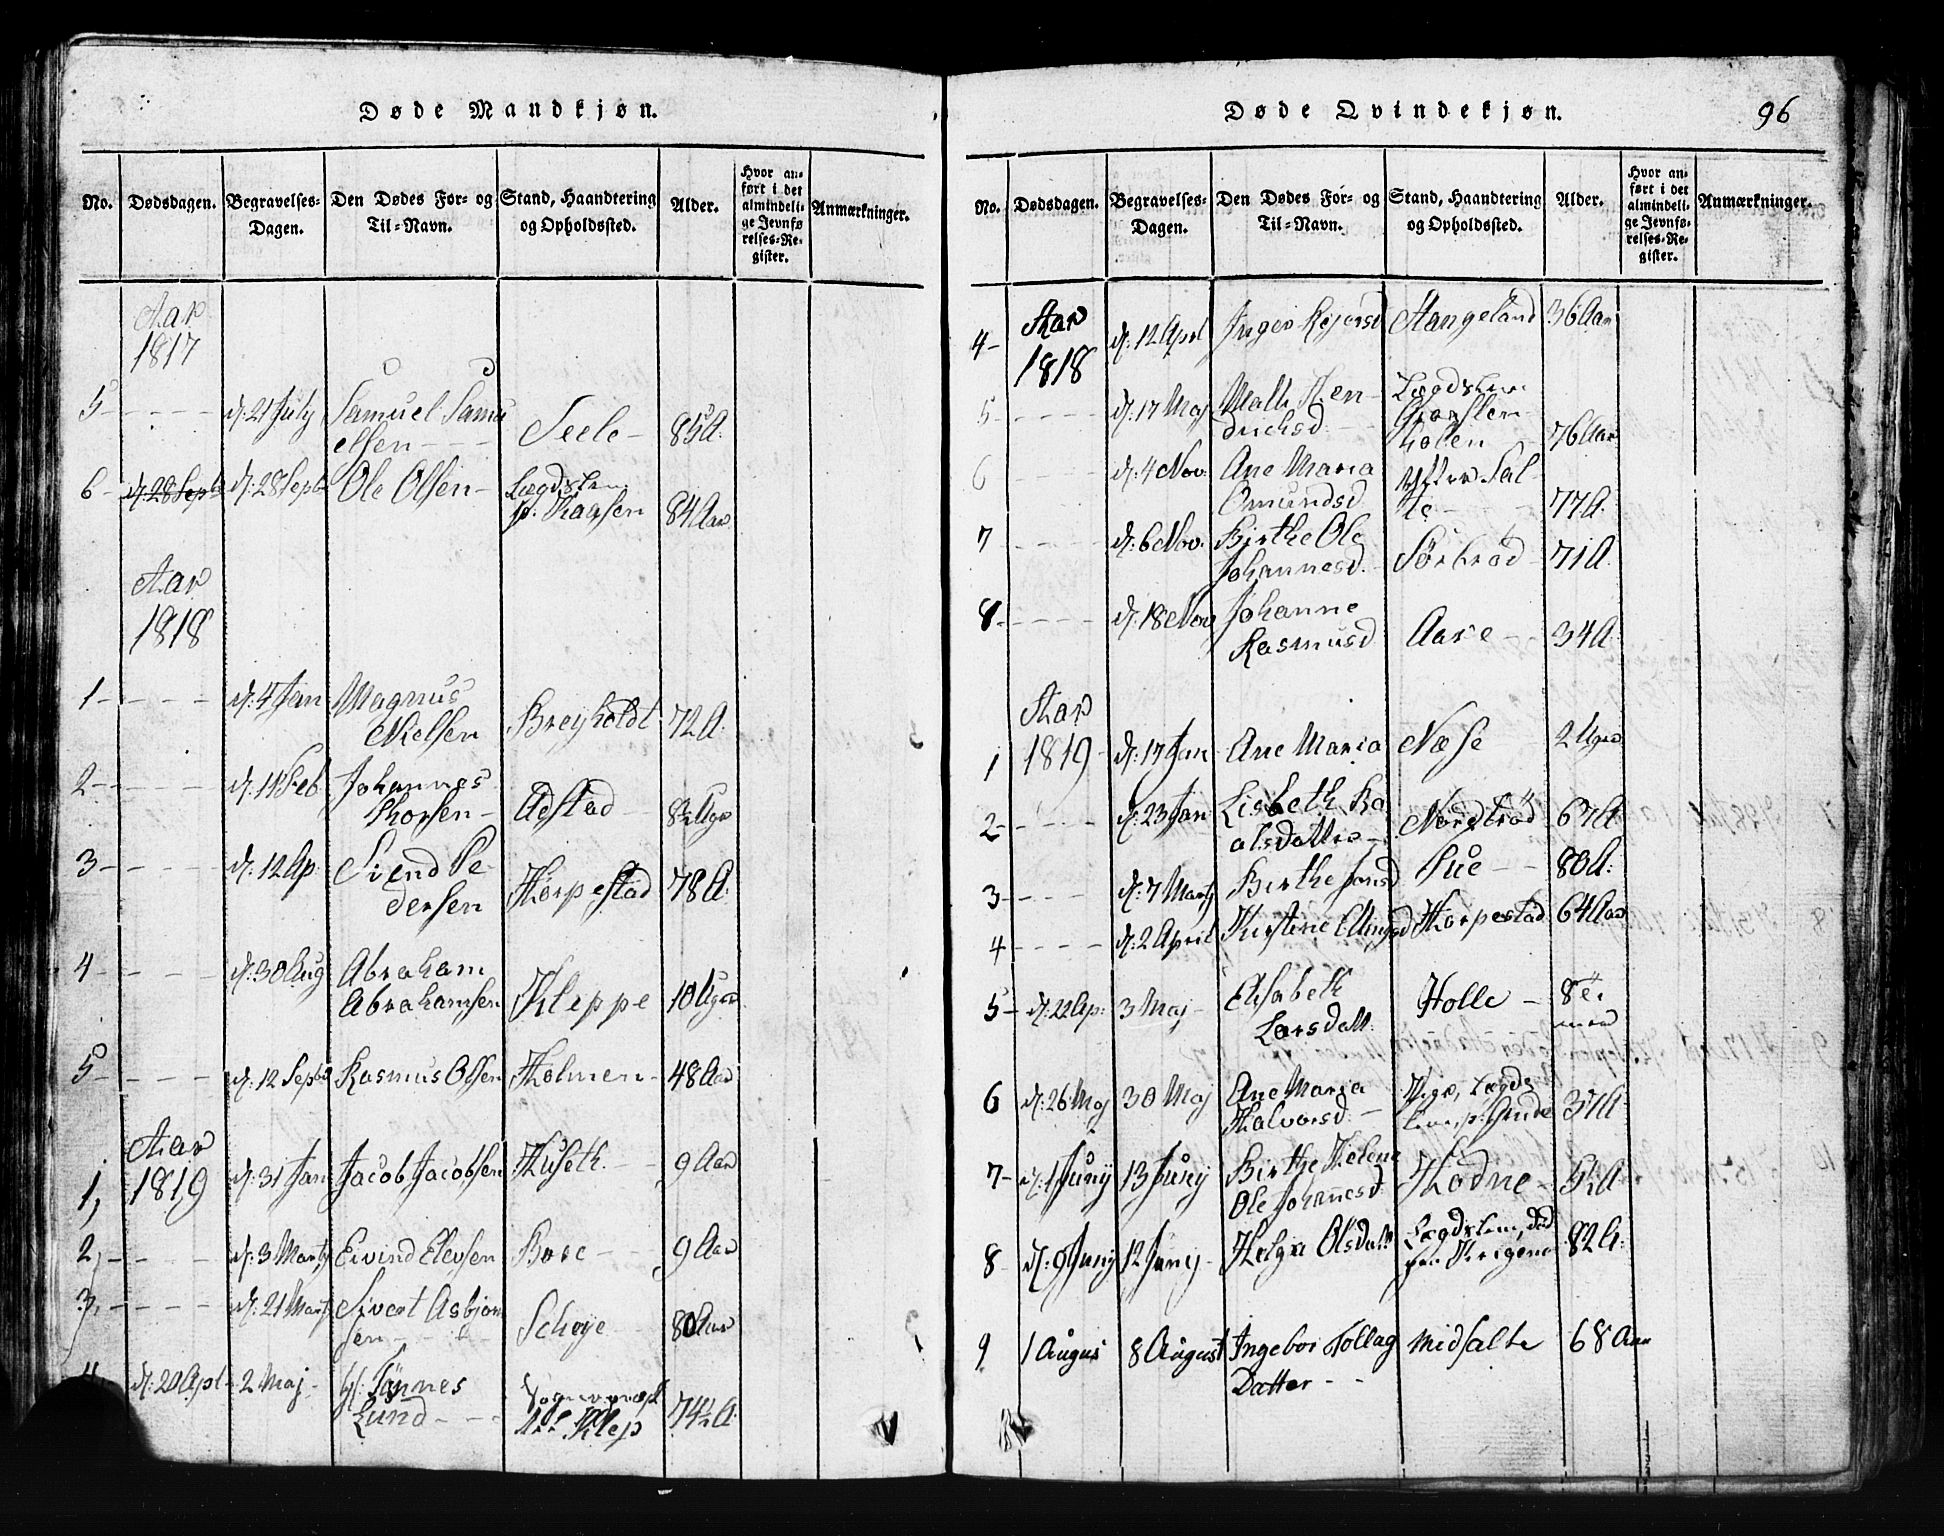 Døde Mandkjøn.
No. Dødsdagen. Begravelses-Dagen. Den Dødes For- og Til-Navn. Stand, Haandtering og Opholdssted. Alder. Hvor anført i det almindelige Jevnførelses-Register. Anmærkninger.
Aar
1817
5 - d. 21 July Samuel Samu
elsen - Seele - 85 A.
6 - d. 28 Septb d. 28 Septb Ole Olsen - Lægdslem
p. Kaasen 84 Aar
Aar
1818
1 - d. 4 Jan Magnus
Nielsen Breyholdt 72 A.
2 - d. 11 Feb Johannes
Thorsen - Adstad 8½ Uger
3 - d. 12 Ap. Svend Pe-
dersen Horpestad 78 A.
4 - d. 30 Aug Abraham
Abrahamsen Kleppe 10 Uger
5 - d. 12 Septb Rasmus Olsen Holmen - 48 Aar
Aar
1819
1, d. 31 Jan Jacob Jacobsen Huseth 9 Aar
2, - d. 3 Marty Eivind Elevsen Bore 9 Aar
3, - d. 21 Marty Sivert Asbjörn
sen Schoye 80 Aar
d. 20 Apl - 2 Maj - Hr. Tönnes
Lund - Sognepræst
Klep 74½ A.
Døde Qvindekjøn. 96
No. Dødsdagen. Begravelses-Dagen. Den Dødes For- og Til-Navn. Stand, Haandtering og Opholdssted. Alder. Hvor anført i det almindelige Jevnførelses-Register. Anmærkninger.
Aar
1818
4 - d. 12 Apl Inger Rejersd Stangeland 36 Aar
5 - d. 17 Maj Malli Hen-
drichsd Lægdslem
76 Aar
6 - d. 4 Nov. Ane Maria
Omundsd Yttre Sal-
te 77 A.
7 - d. 6 Nov. Birthe Ole
Johannesd Sörbröd 71 A.
8 - d. 18 Nov Johanne
Rasmusd Aase 34 A.
Aar
1819
1 d. 17 Jan Ane Maria Næse 2 Uger
2 - d. 23 Jan Lisbeth Ro
alsdatter - Nordbröd 67 A
3 - d. 7 Marty Birthe Jonsd Pue 80 A.
4 - d. 2 April Kirstene Ellingsd Horpestad 64 Aar
5 - d. 22 Ap. 3 Maj - Elisabeth
Larsdatt. Holle - 8
6 d. 26 Maj 30 Maj Ane Maria
Halvorsd - Pige, Lægds
lem p. Grude 37 A.
7 - d. 1 Juny 13 Juny Birthe Helene
Ole Johannesd Hodne - 5½ A
8 - d. 9 Juny 12 Juny - Helga Olsdatt Lægdslem, död
paa 82 A.
9 1 Augus 8 August Ingebor Tollag
Datter - - Midsalte 68 Aar